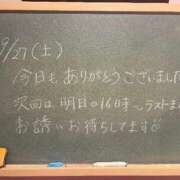 9/27(土)
今日もありがとうございました
次回は、明日の16時〜ラストまで
お誘いお待ちしてます